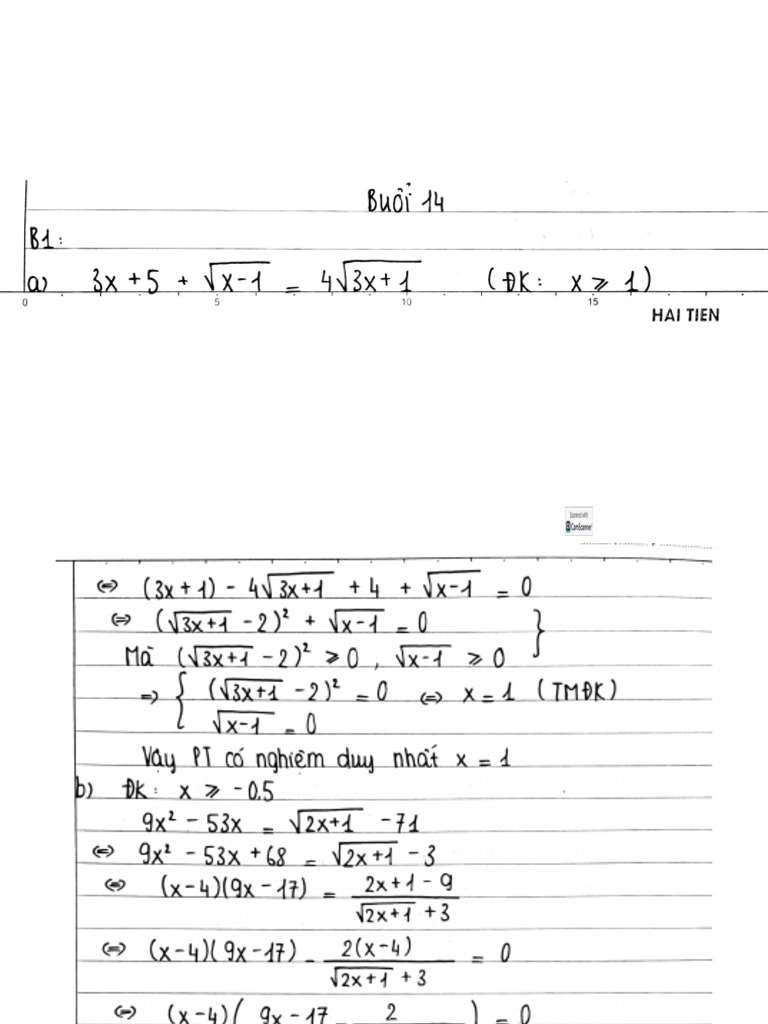 Buổi 14
B1:
a) 3x + 5 + √(x-1) = 4√(3x+1) (ĐK: x ⩾ 1)
0 5 10 15
HAI TIEN
Scanned with
CamScanner
⇔ (3x+1) - 4√(3x+1) + 4 + √(x-1) = 0
⇔ (√(3x+1) - 2)² + √(x-1) = 0 }
Mà (√(3x+1) - 2)² ⩾ 0, √(x-1) ⩾ 0
=> { (√(3x+1) - 2)² = 0 ⇔ x = 1 (TMĐK)
√(x-1) = 0
Vậy PT có nghiệm duy nhất x = 1
b) ĐK: x ⩾ -0.5
9x² - 53x = √(2x+1) - 71
⇔ 9x² - 53x + 68 = √(2x+1) - 3
⇔ (x-4)(9x-17) = (2x+1-9)/(√(2x+1) + 3)
⇔ (x-4)(9x-17) - 2(x-4)/(√(2x+1) + 3) = 0
⇔ (x-4)( 9x-17 - 2 ) = 0